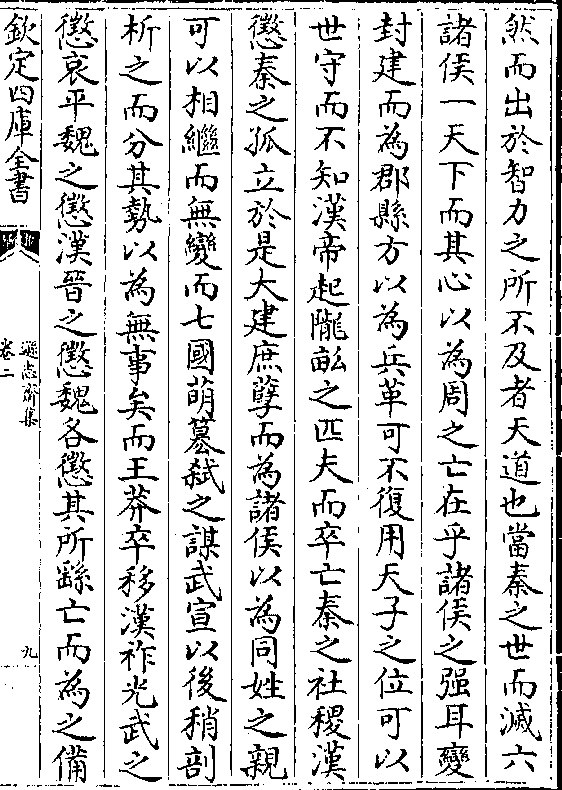 然而出於智力之所不及者天道也當秦之世而滅六
諸侯一天下而其心以為周之亡在乎諸侯之强耳變
封建而為郡縣方以為兵革可不復用天子之位可以
世守而不知漢帝起隴畝之匹夫而卒亡秦之社稷漢
懲秦之孤立於是大建庶孽而為諸侯以為同姓之親
可以相繼而無變而七國萌簒弑之謀武宣以後稍剖
析之而分其勢以為無事矣而王莽卒移漢祚光武之
懲哀平魏之懲漢晉之懲魏各懲其所繇亡而為之備
欽定四庫全書
遜志齋集
卷二
九